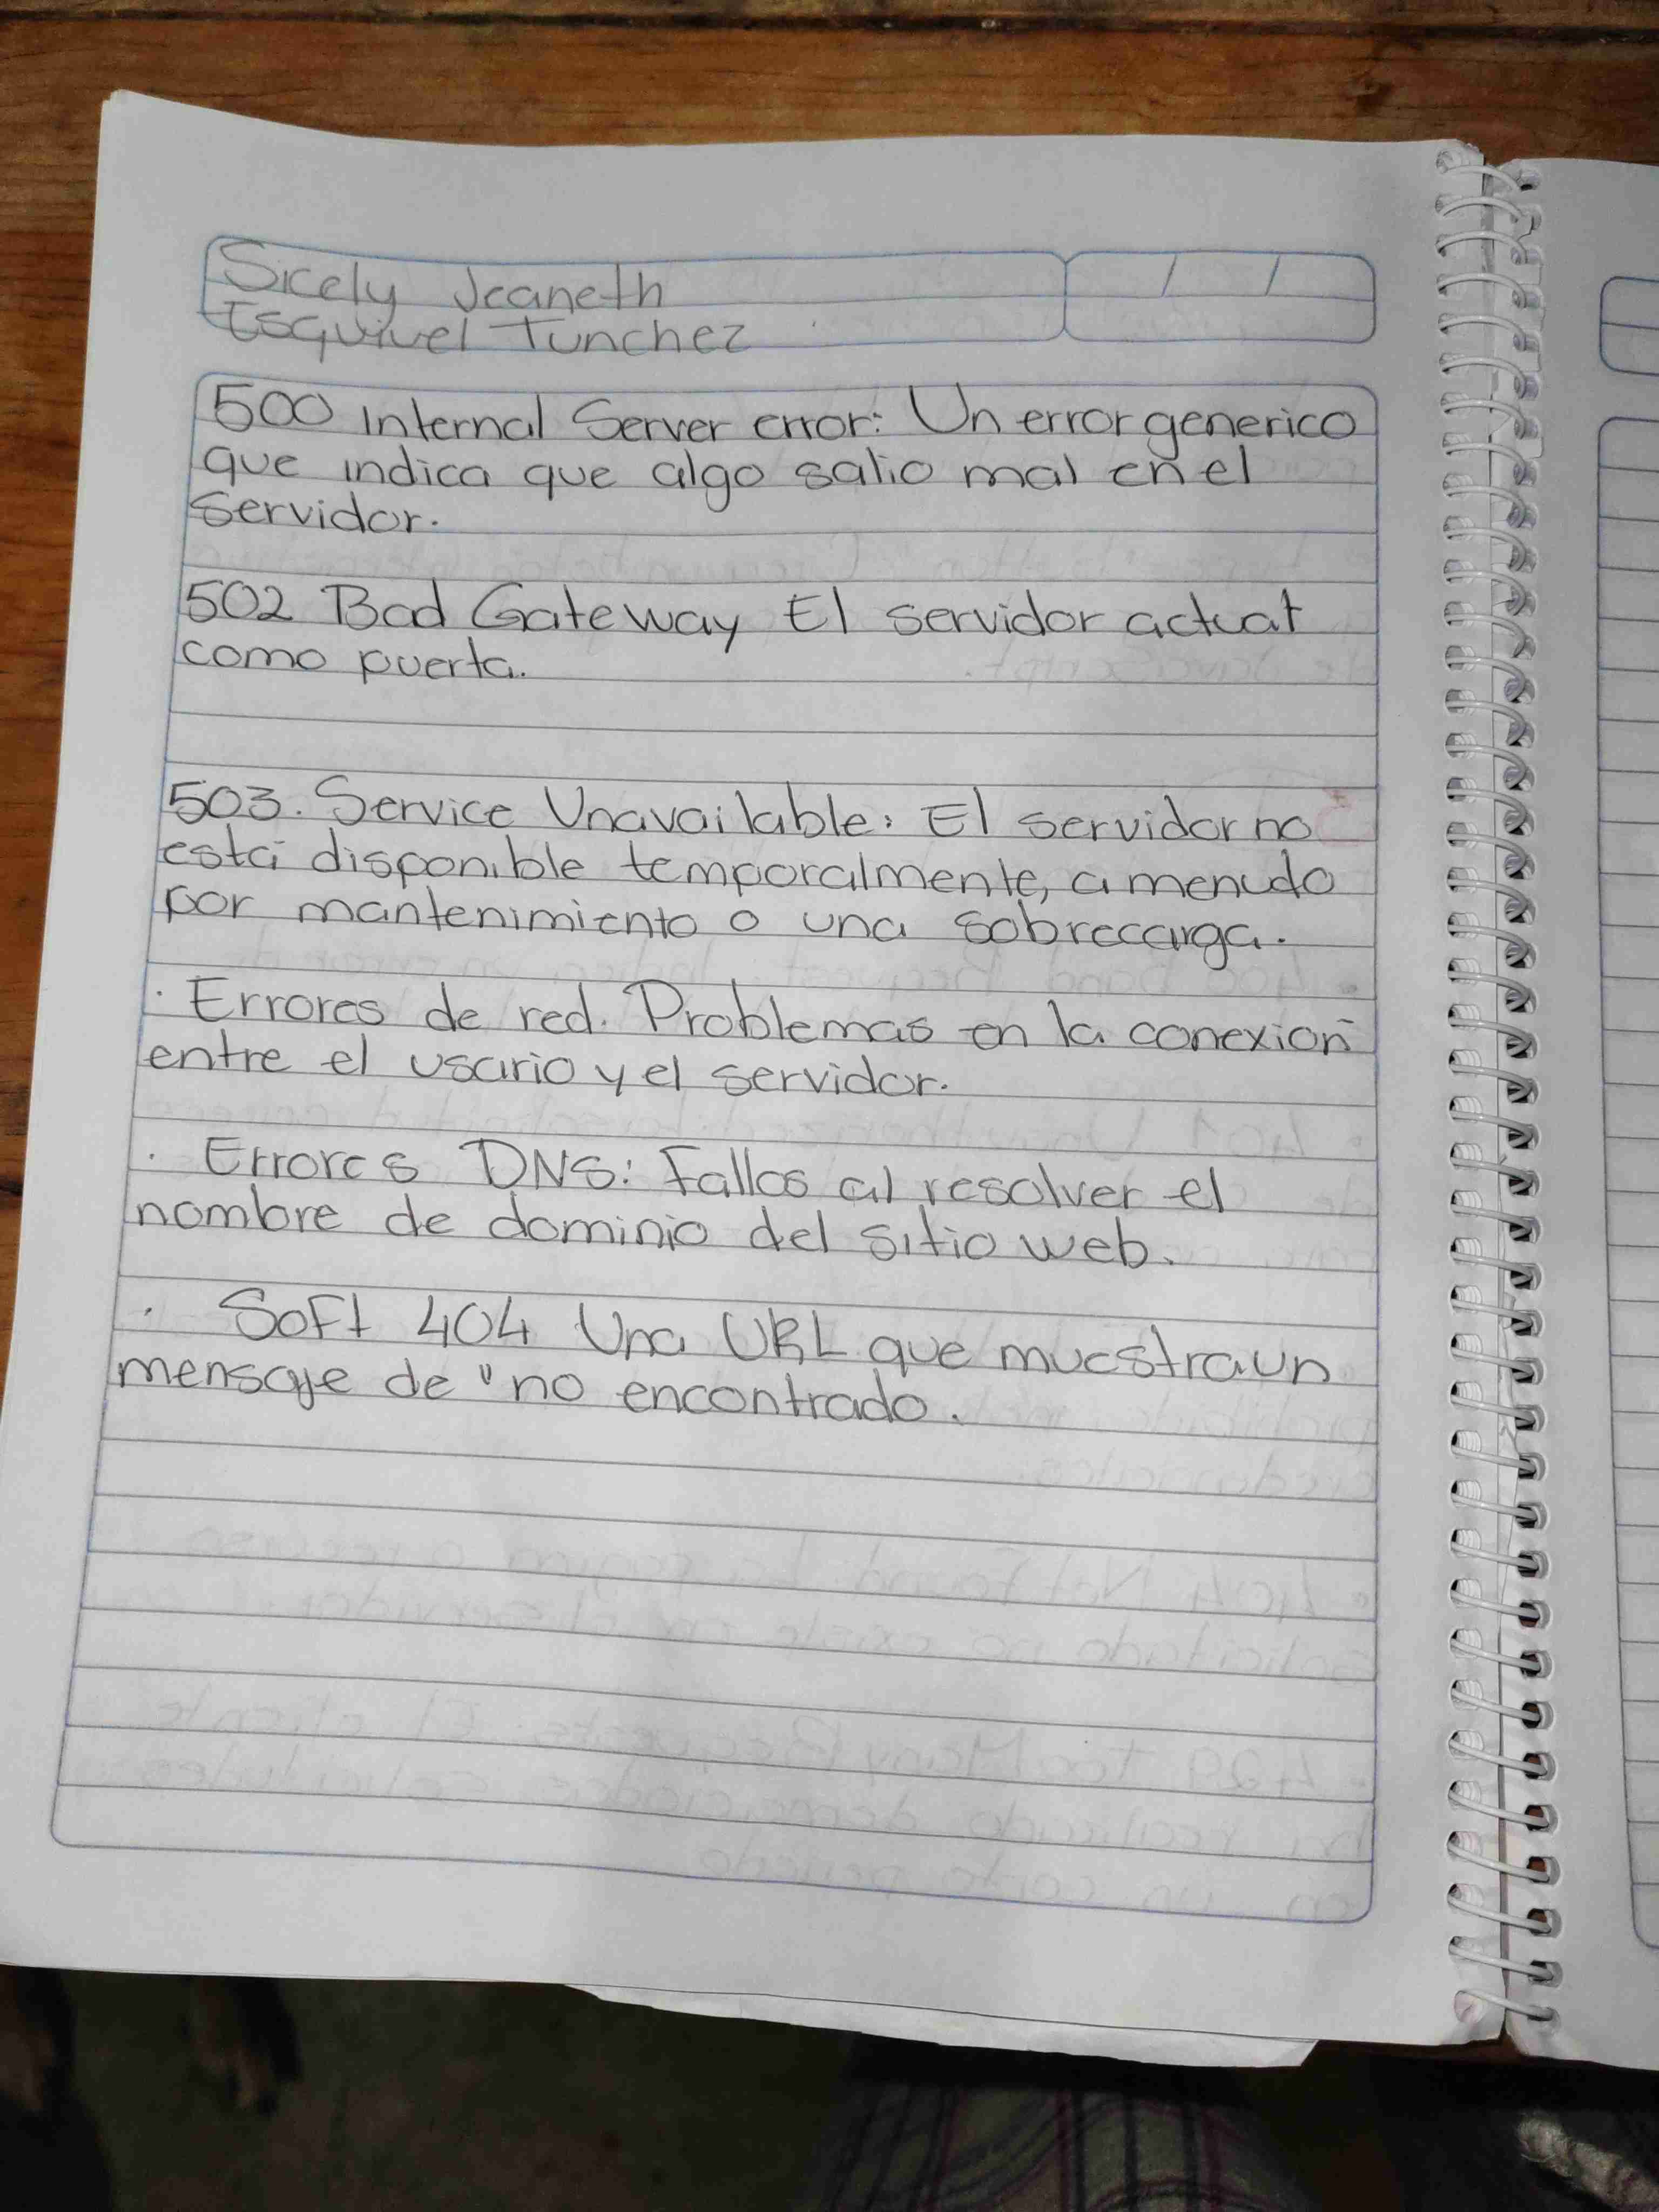 Sicely Jeaneth
Esquivel Tunchez
500 Internal Server error: Un error generico
que indica que algo salio mal en el
servidor.
502 Bad Gateway El servidor actuat
como puerta.
503. Service Unavailable: El servidor no
está disponible temporalmente, a menudo
por mantenimiento o una sobrecarga.
· Errores de red. Problemas en la conexión
entre el usario y el servidor.
· Errores DNS: Fallos al resolver el
nombre de dominio del sitio web.
· Soft 404 Una URL que muestra un
mensaje de "no encontrado.